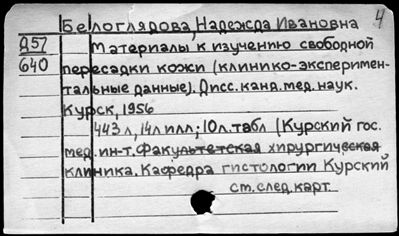 4
Белоглядова, Надежда Ивановна
Д57 Материалы к изучению свободной
640 пересадки кожи (клинико-эксперимен-
тальные данные). Дисс. канд. мед. наук.
Курск, 1956
443 л, 14 л илл; 10 л. табл (Курский гос.
мед. ин-т. Факультетская хирургическая
клиника. Кафедра гистологии Курский
см. след. карт.